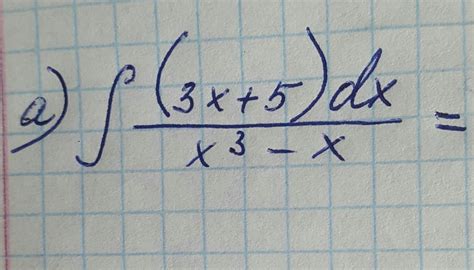 a) ∫ (3x+5)dx / x³ - x =